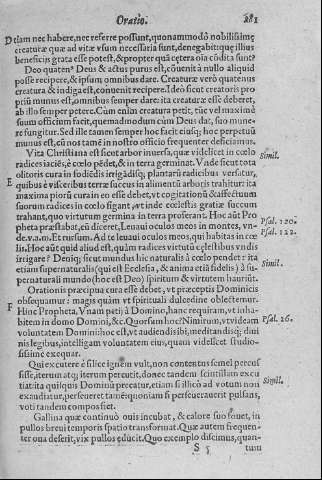 Oratio. 281
D etiam nec habere, nec referre possunt, quonammodo nobilissimę
creaturæ quæ ad vitæ vsum necessaria sunt, denegabitque illius
beneficijs grata esse potest, & propter quã cętera oĩa cõdita sunt?
Deo quatenꝰ Deus & actus purus est, cõuenit à nullo aliquid
posse recipere, & ipsum omnibus dare. Creaturæ verò quatenus
creatura & indiga est, conuenit recipere. Ideò sicut creatoris pro
priũ munus est, omnibus semper dare: ita creaturæ esse deberet,
ab illo semper petere. Cùm enim creatura petit, tũc vel maximè
suum officium facit, quemadmodum cùm Deus dat, suo mune-
re fungitur. Sed ille tamen semper hoc facit eiusq; hoc perpetuũ
munus est, cũ nos tamẽ in nostro officio frequenter deficiamus.
Vita Christiana est sicut arbor inuersa, quæ videlicet in cœlo
radices iaciẽs, è cœlo pẽdet, & in terra germinat. Vnde sicut tota
olitoris cura in fodiẽdis irrigãdisq; plantarũ radicibus versatur,
E quibus è visceribus terræ succus in alimentũ arboris trahitur: ita
maxima piorũ cura in eo esse debet, vt cogitationũ & affectuum
suorum radices in cœlo figant, vt inde cœlestis gratiæ succum
trahant, quo virtutum germina in terra proferant. Hoc aũt Pro
pheta præstabat, cũ diceret, Leuaui oculos meos in montes, vn-
de. v. a. m. Et rursum. Ad te leuaui oculos meos, qui habitas in cœ
lis. Hoc aũt quid aliud est, quàm radices virtutũ cęlestibus vndis
irrigare? Deniq; sicut mundus hic naturalis à cœlo pendet: ita
etiam supernaturalis (qui est Ecclesia, & anima etiã fidelis) à su-
pernaturali mundo (hoc est Deo) spiritum & virtutem hauriũt.
Orationis præcipua cura esse debet, vt præceptis Dominicis
obsequamur: magis quàm vt spirituali dulcedine oblectemur.
F Hinc Propheta, Vnam petij à Domino, hanc requiram, vt inha-
bitem in domo Domini, &c. Quorsum hoc? Nimirum, vt videam
voluntatem Domini: hoc est, vt audiendis ibi, meditandisq; diui
nis legibus, intelligam voluntatem eius, quam videlicet studio-
sissimè exequar.
Qui excutere è silice ignem vult, non contentus semel percus
sisse, iterum atq; iterum percutit, donec tandem scintillam excu
tiat: ita qui quis Dominũ precatur, etiam si illico ad votum non
exaudiatur, perseueret tamẽ: quoniam si perseuerauerit pulsans,
voti tandem compos fiet.
Gallina quæ continuò ouis incubat, & calore suo fouet, in
pullos breui temporis spatio transformat. Quæ autem frequen-
ter oua deserit, vix pullos edũcit. Quo exemplo discimus, quan-
S 5 tum
Simil.
Psal. 120.
Psal. 122.
Simil.
Psal. 26.
Simil.